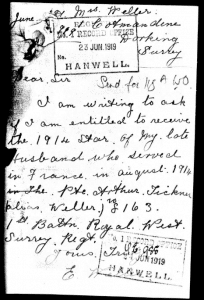 June Mrs. Weller.
RECORD OFFICE
23 JUN. 1919
No.
HANWELL.
Woking
Surrey
Dear Sir
Send for
I am writing to ask
if I am entitled to receive
the 1914 Star. of My. late
husband who served
in France, in august. 1914
in The. Pte. Arthur. Tickner
alias. Weller,) 163.
1st Battn. Royal. West.
Surrey. Regt.
Yours. Truly
E
RECORD OFFICE
24 JUN 1919
HANWELL.